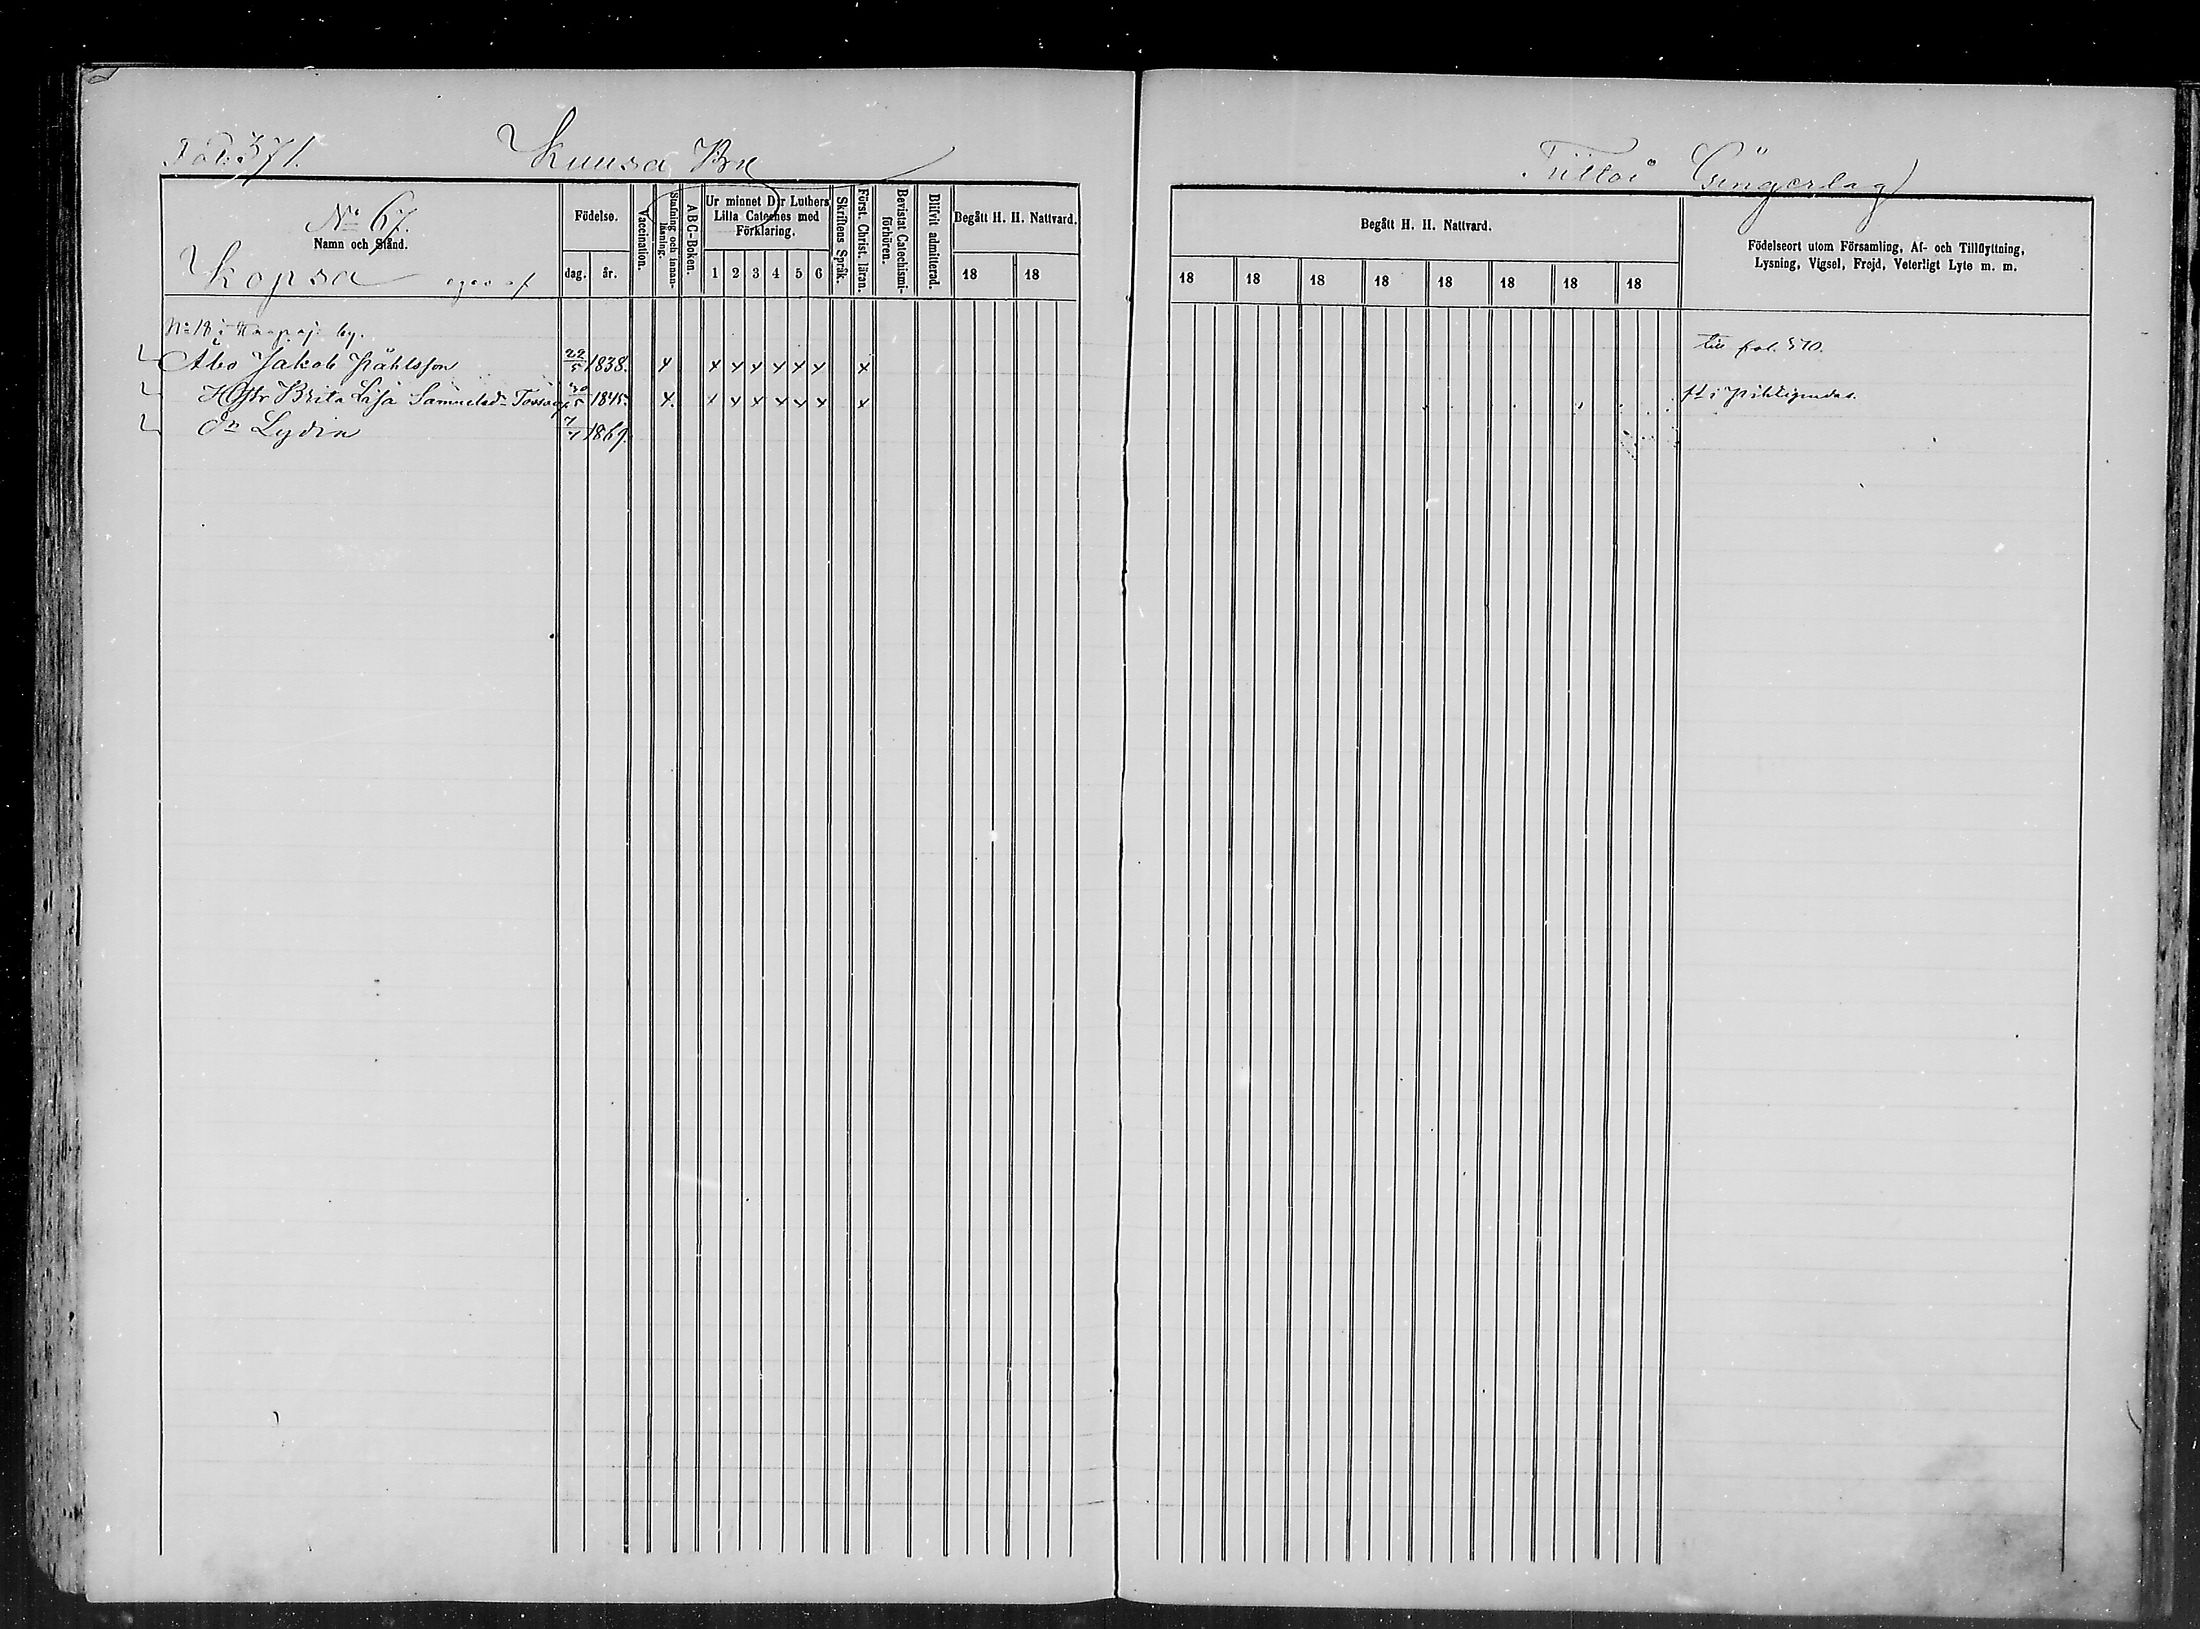 Fol. 371.
Kuusa By
No 67.
Namn och Stånd.
Kopsa eges af
Födelse.
dag. år.
Vaccination.
Stafning och innanläsning.
A B C-Boken.
Ur minnet D:r Luthers Lilla Cateches med Förklaring.
1 2 3 4 5 6
Skriftens Språk.
Först. Christ. läran.
Bevistat Catechismiförhören.
Blifvit admitterad.
Begått H. H. Nattvard.
18 18
No 18 i by.
Abo Jakob Påhlsson 22/5 1838. x x x x x x x x
Hstr Brita Lisa Samuelsd:r 30/5 1845. x x x x x x x x
Dr Lydia 7/7 1869.
Gångerlag
Begått H. H. Nattvard.
18 18 18 18 18 18 18 18
Födelseort utom Församling, Af- och Tillflyttning,
Lysning, Vigsel, Frejd, Veterligt Lyte m. m.
till fol. 570.
ft i Pihtipudas.